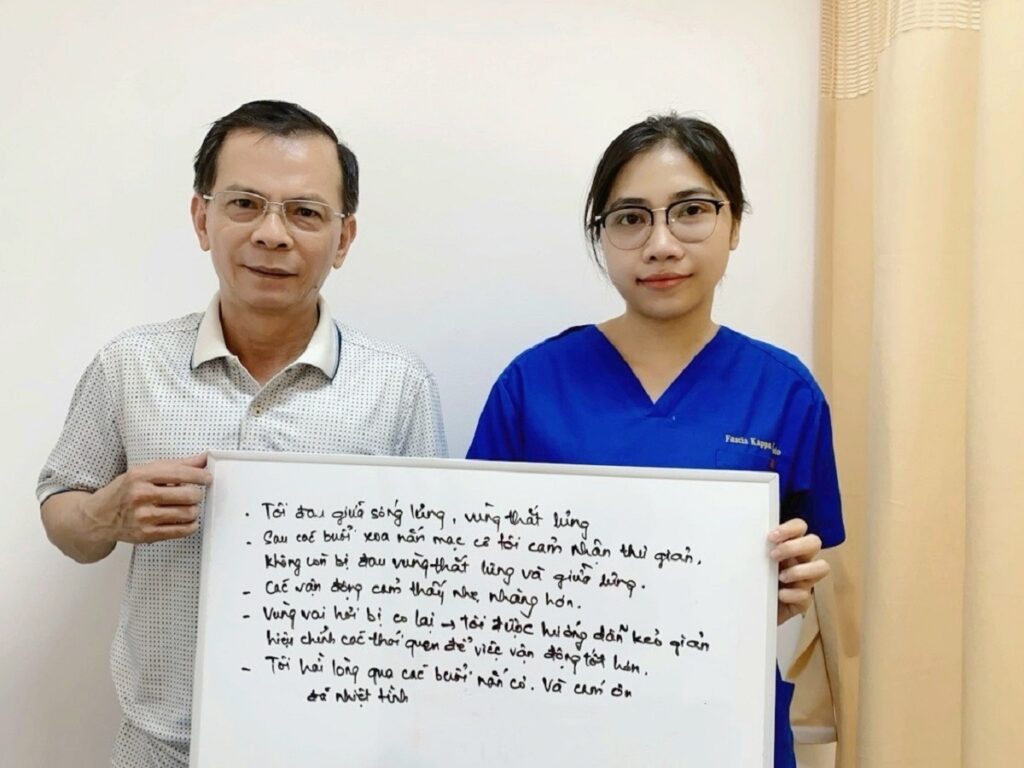 Fascia Kappa
- Tôi đau giữa sống lưng, vùng thắt lưng
- Sau các buổi xoa nắn mạc cơ tôi cảm nhận thư giản,
không còn bị đau vùng thắt lưng và giữa lưng.
- Các vận động cảm thấy nhẹ nhàng hơn.
- Vùng vai hơi bị co lại → tôi được hướng dẫn kéo giản
hiệu chỉnh các thói quen để việc vận động tốt hơn.
- Tôi hài lòng qua các buổi nắn cơ. Và cảm ơn
đã nhiệt tình